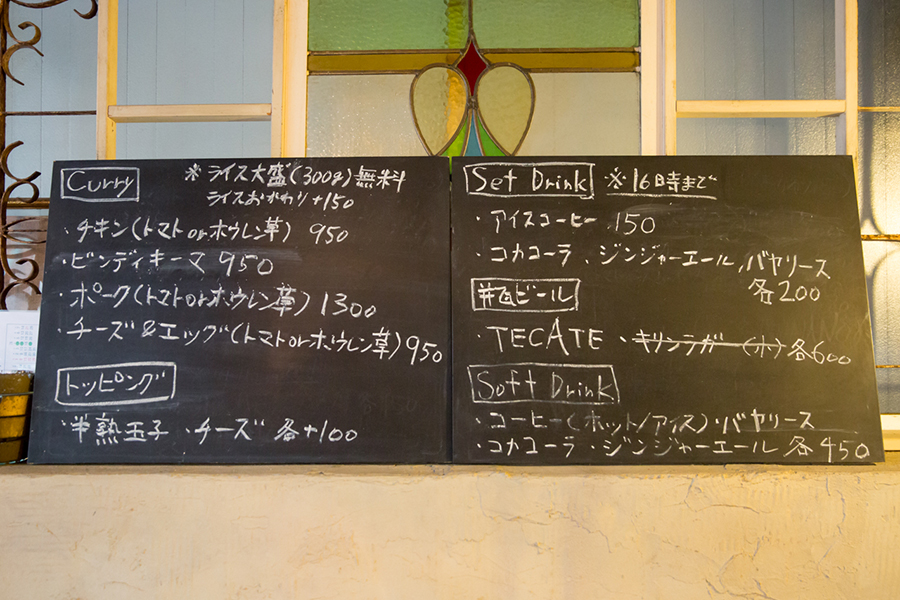 Curry ※ライス大盛(300g)無料
ライスおかわり+150
・チキン(トマトorホウレン草) 950
・ビンディキーマ 950
・ポーク(トマトorホウレン草) 1300
・チーズ&エッグ(トマトorホウレン草) 950
トッピング
・半熟玉子 ・チーズ 各+100
Set Drink ※16時まで
・アイスコーヒー 150
・コカコーラ ・ジンジャーエール ・バヤリース
各200
瓶ビール
・TECATE ・キリンラガー(小) 各600
Soft Drink
・コーヒー(ホット/アイス)・バヤリース
・コカコーラ ・ジンジャーエール 各450